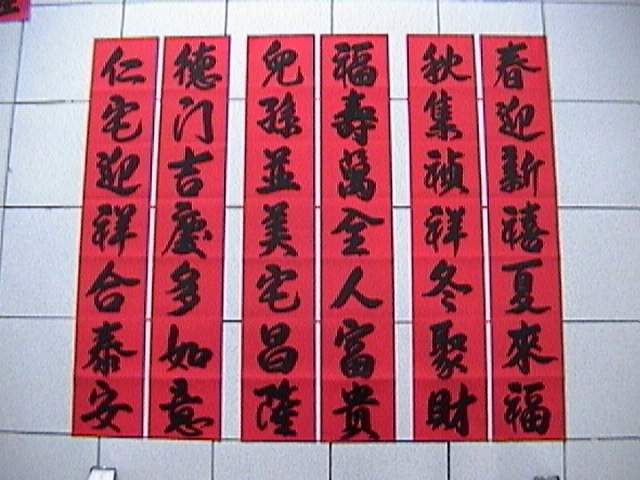 春迎新禧夏來福
秋集祯祥冬聚財
福壽萬全人富貴
兒孫並美宅昌隆
德门吉慶多如意
仁宅迎祥合泰安